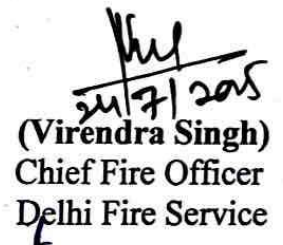 24/7/2025
(Virendra Singh)
Chief Fire Officer
Delhi Fire Service